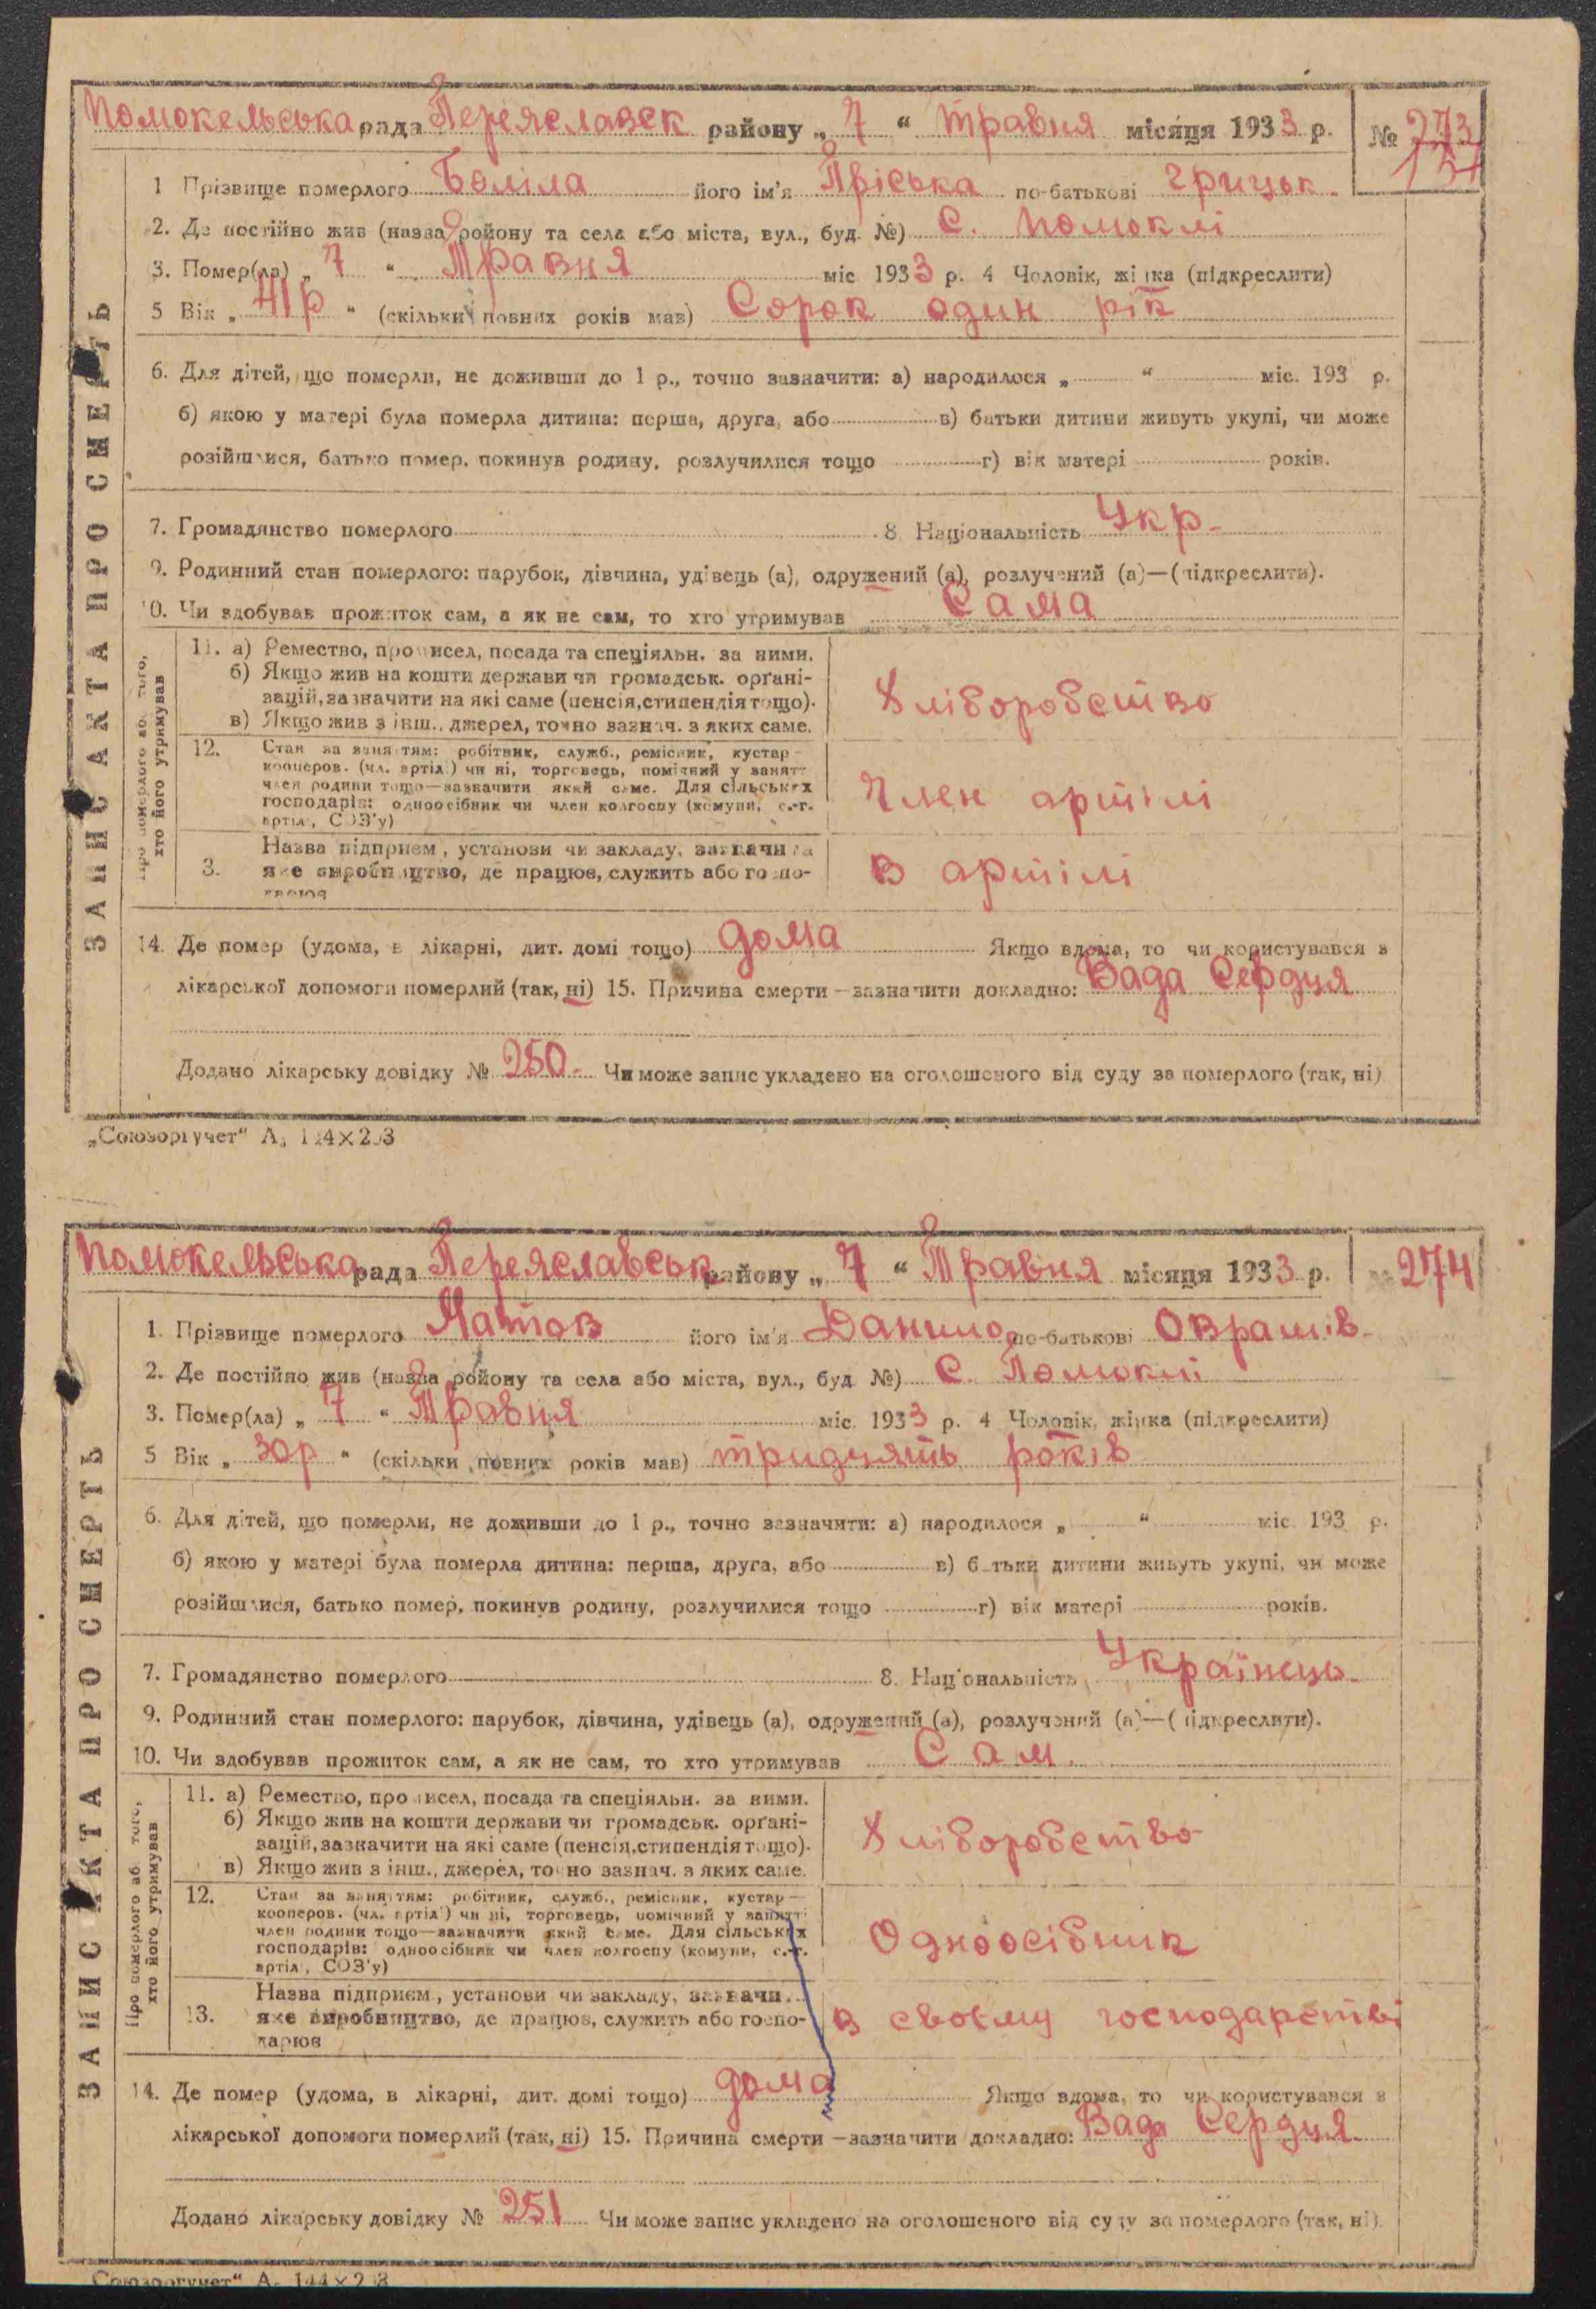 Помокельська рада Переяславск району „ 7 “ травня місяця 1933 р. № 273
1 Прізвище померлого Боліла його ім'я Пріська по-батькові Грицьк.
2. Де постійно жив (назва ройону та села або міста, вул., буд. №) С. Помоклі
3. Помер(ла) „ 7 “ Травня міс 1933 р. 4 Чоловік, жінка (підкреслити)
5 Вік „ 41 р “ (скільки повних років мав) Сорок один рік
6. Для дітей, що померли, не доживши до 1 р., точно зазначити: а) народилося „ “ міс. 193 р.
б) якою у матері була померла дитина: перша, друга, або в) батьки дитини живуть укупі, чи може
розійшлися, батько помер, покинув родину, розлучилися тощо г) вік матері років.
7. Громадянство померлого 8 Національність Укр.
9. Родинний стан померлого: парубок, дівчина, удівець (а), одружений (а), розлучений (а)—(підкреслити).
10. Чи здобував прожиток сам, а як не сам, то хто утримував Сама
ЗАПИС АКТА ПРО СМЕРТЬ
Про померлого або того,
хто його утримував
11. а) Ремество, промисел, посада та спеціяльн. за ними.
б) Якщо жив на кошти держави чи громадськ. орґані-
зацій, зазначити на які саме (пенсія, стипендія тощо).
в) Якщо жив з інш., джерел, точно зазнач. з яких саме.
Хліборобство
12. Стан за заняттям: робітник, служб., ремісник, кустар—
кооперов. (чл. артілі) чи ні, торговець, помічний у занятт
член родини тощо—зазначити який саме. Для сільських
господарів: одноосібник чи член колгоспу (комуни, с.-г.
артілі, СОЗ'у)
Член артілі
3. Назва підприєм, установи чи закладу, зазначи
яке виробництво, де працює, служить або госпо-
дарює
в артілі
14. Де помер (удома, в лікарні, дит. домі тощо) дома Якщо вдома, то чи користувався з
лікарської допомоги померлий (так, ні) 15. Причина смерти—зазначити докладно: Вада Сердця
Додано лікарську довідку № 250. Чи може запис укладено на оголошеного від суду за померлого (так, ні)
„Союзоргучет“
Помокельська рада Переяславськ району „ 7 “ Травня місяця 1933 р. № 274
1. Прізвище померлого Матов його ім'я Данило по-батькові Оврамів.
2. Де постійно жив (назва ройону та села або міста, вул., буд №) С. Помоклі
3. Помер(ла) „ 7 “ Травня міс. 1933 р. 4 Чоловік, жінка (підкреслити)
5 Вік „ 30 р “ (скільки повних років мав) тридцять років
6. Для дітей, що померли, не доживши до 1 р., точно зазначити: а) народилося „ “ міс. 193 р.
б) якою у матері була померла дитина: перша, друга, або в) батьки дитини живуть укупі, чи може
розійшлися, батько помер, покинув родину, розлучилися тощо г) вік матері років.
7. Громадянство померлого 8. Національність Українець.
9. Родинний стан померлого: парубок, дівчина, удівець (а), одружений (а), розлучений (а)—(підкреслити).
10. Чи здобував прожиток сам, а як не сам, то хто утримував Сам.
ЗАПИС АКТА ПРО СМЕРТЬ
Про померлого або того,
хто його утримував
11. а) Ремество, промисел, посада та спеціяльн. за ними.
б) Якщо жив на кошти держави чи громадськ. орґані-
зацій, зазначити на які саме (пенсія, стипендія тощо).
в) Якщо жив з інш., джерел, точно зазнач. з яких саме.
Хліборобство
12. Стан за заняттям: робітник, служб., ремісник, кустар—
кооперов. (чл. артілі) чи ні, торговець, помічний у занятті
член родини тощо—зазначити який саме. Для сільських
господарів: одноосібник чи член колгоспу (комуни, с.-г.
артілі, СОЗ'у)
Одноосібник
13. Назва підприєм, установи чи закладу, зазначи
яке виробництво, де працює, служить або госпо-
дарює
в своєму господарстві
14. Де помер (удома, в лікарні, дит. домі тощо) дома Якщо вдома, то чи користувався з
лікарської допомоги померлий (так, ні) 15. Причина смерти—зазначити докладно: Вада Сердця.
Додано лікарську довідку № 251 Чи може запис укладено на оголошеного від суду за померлого (так, ні).